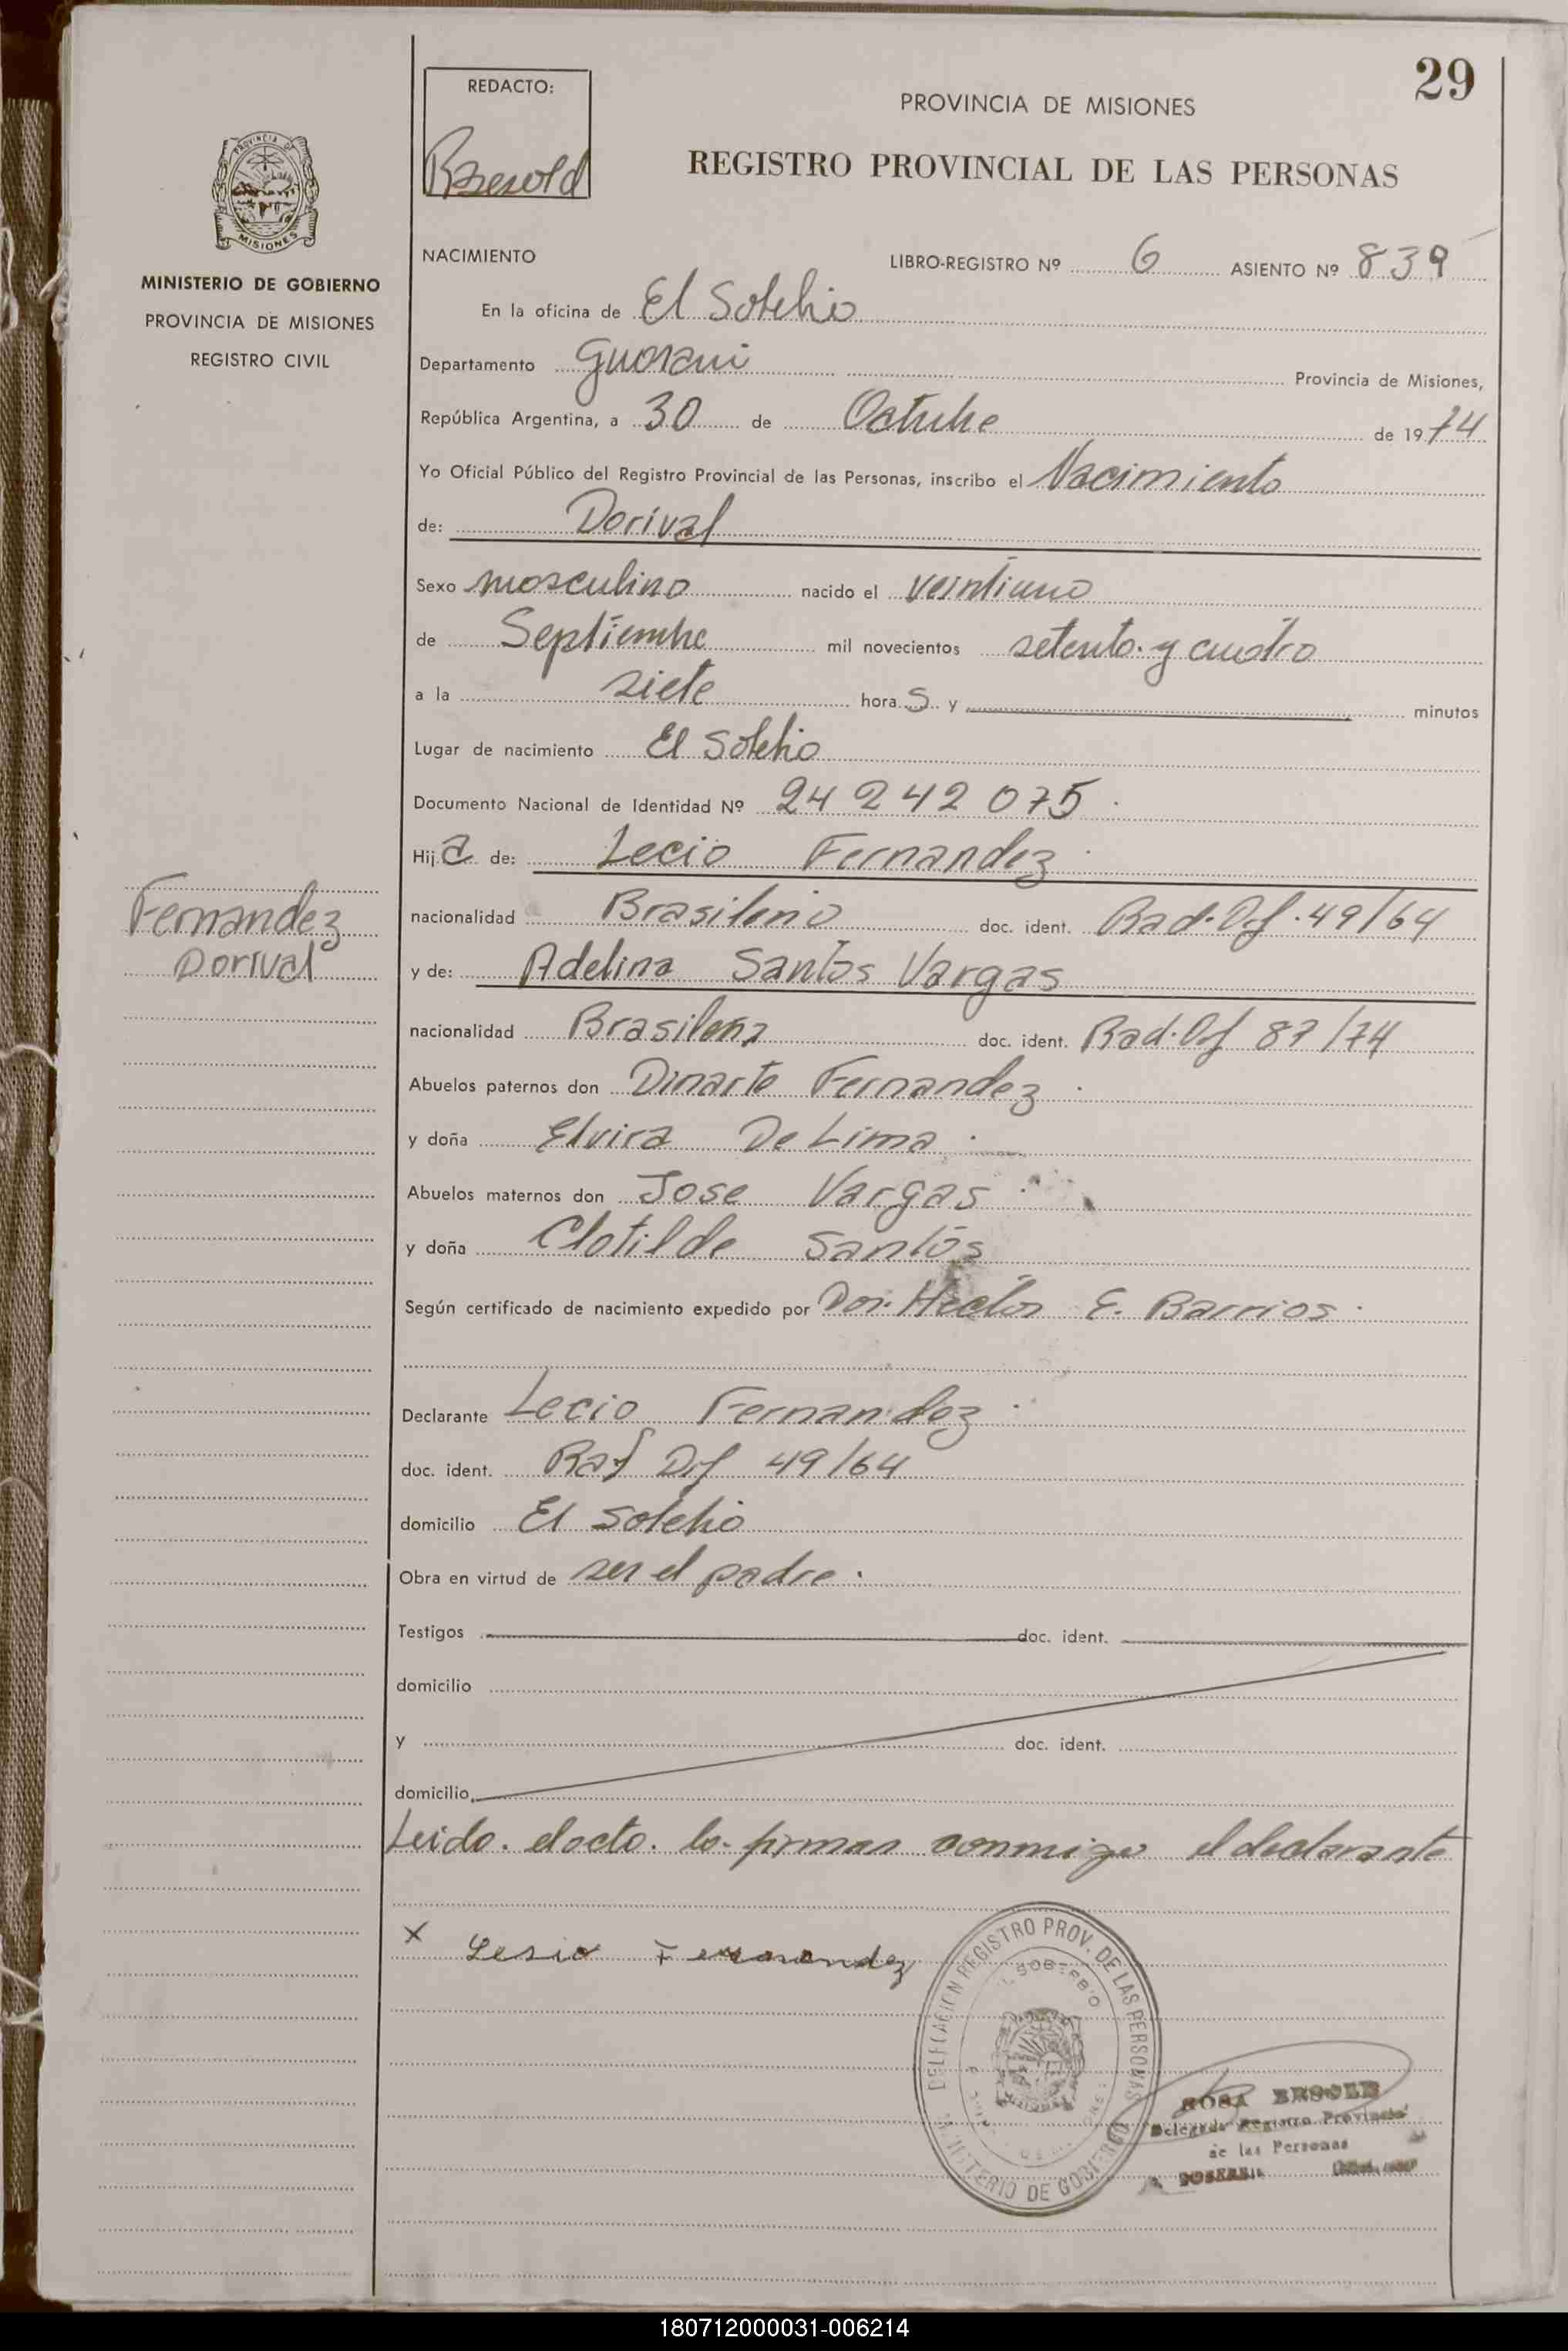 29
REDACTO:
PROVINCIA DE MISIONES
REGISTRO PROVINCIAL DE LAS PERSONAS
PROVINCIA DE
MISIONES
MINISTERIO DE GOBIERNO
PROVINCIA DE MISIONES
REGISTRO CIVIL
NACIMIENTO LIBRO-REGISTRO Nº 6 ASIENTO Nº 839
En la oficina de El Soberbio
Departamento Guarani Provincia de Misiones,
República Argentina, a 30 de Octubre de 1974
Yo Oficial Público del Registro Provincial de las Personas, inscribo el Nacimiento
de: Dorival
Sexo masculino nacido el veintiuno
de Septiembre mil novecientos setenta y cuatro
a la siete hora s y minutos
Lugar de nacimiento El Soberbio
Documento Nacional de Identidad Nº 24 242 075
Hij o de: Lecio Fernandez
Fernandez
Dorival
nacionalidad Brasileño doc. ident. Rad. Def. 49/64
y de: Adelina Santos Vargas
nacionalidad Brasileña doc. ident. Rad. Def 87/74
Abuelos paternos don Dinarte Fernandez
y doña Elvira De Lima
Abuelos maternos don Jose Vargas
y doña Clotilde Santos
Según certificado de nacimiento expedido por Dor. Hector E. Barrios
Declarante Lecio Fernandez
doc. ident. Rad Def 49/64
domicilio El Soberbio
Obra en virtud de ser el padre.
Testigos doc. ident.
domicilio
y doc. ident.
domicilio
Leido el acta la firman conmigo el declarante
x Lesio Fernandez
DELEGACION REGISTRO PROV. DE LAS PERSONAS
EL SOBERBIO
MINISTERIO DE GOBIERNO
ROSA
Delegada Registro Provincial
de las Personas
180712000031-006214